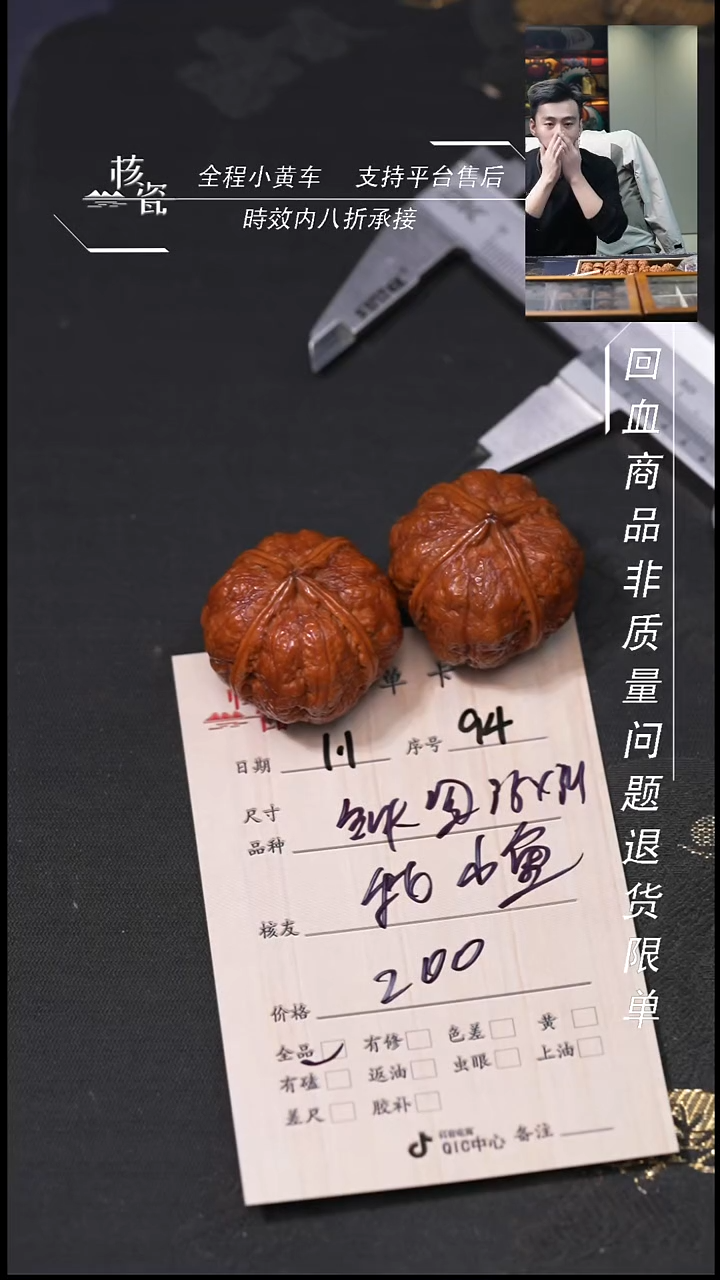 核瓷
全程小黄车 支持平台售后
時效内八折承接
回血商品非质量问题退货限单
单卡
日期 1.1 序号 94
尺寸
品种
小鱼
核友
200
价格
全品 有修 色差 黄
有磕 返油 虫眼 上油
差尺 胶补
QIC中心 备注